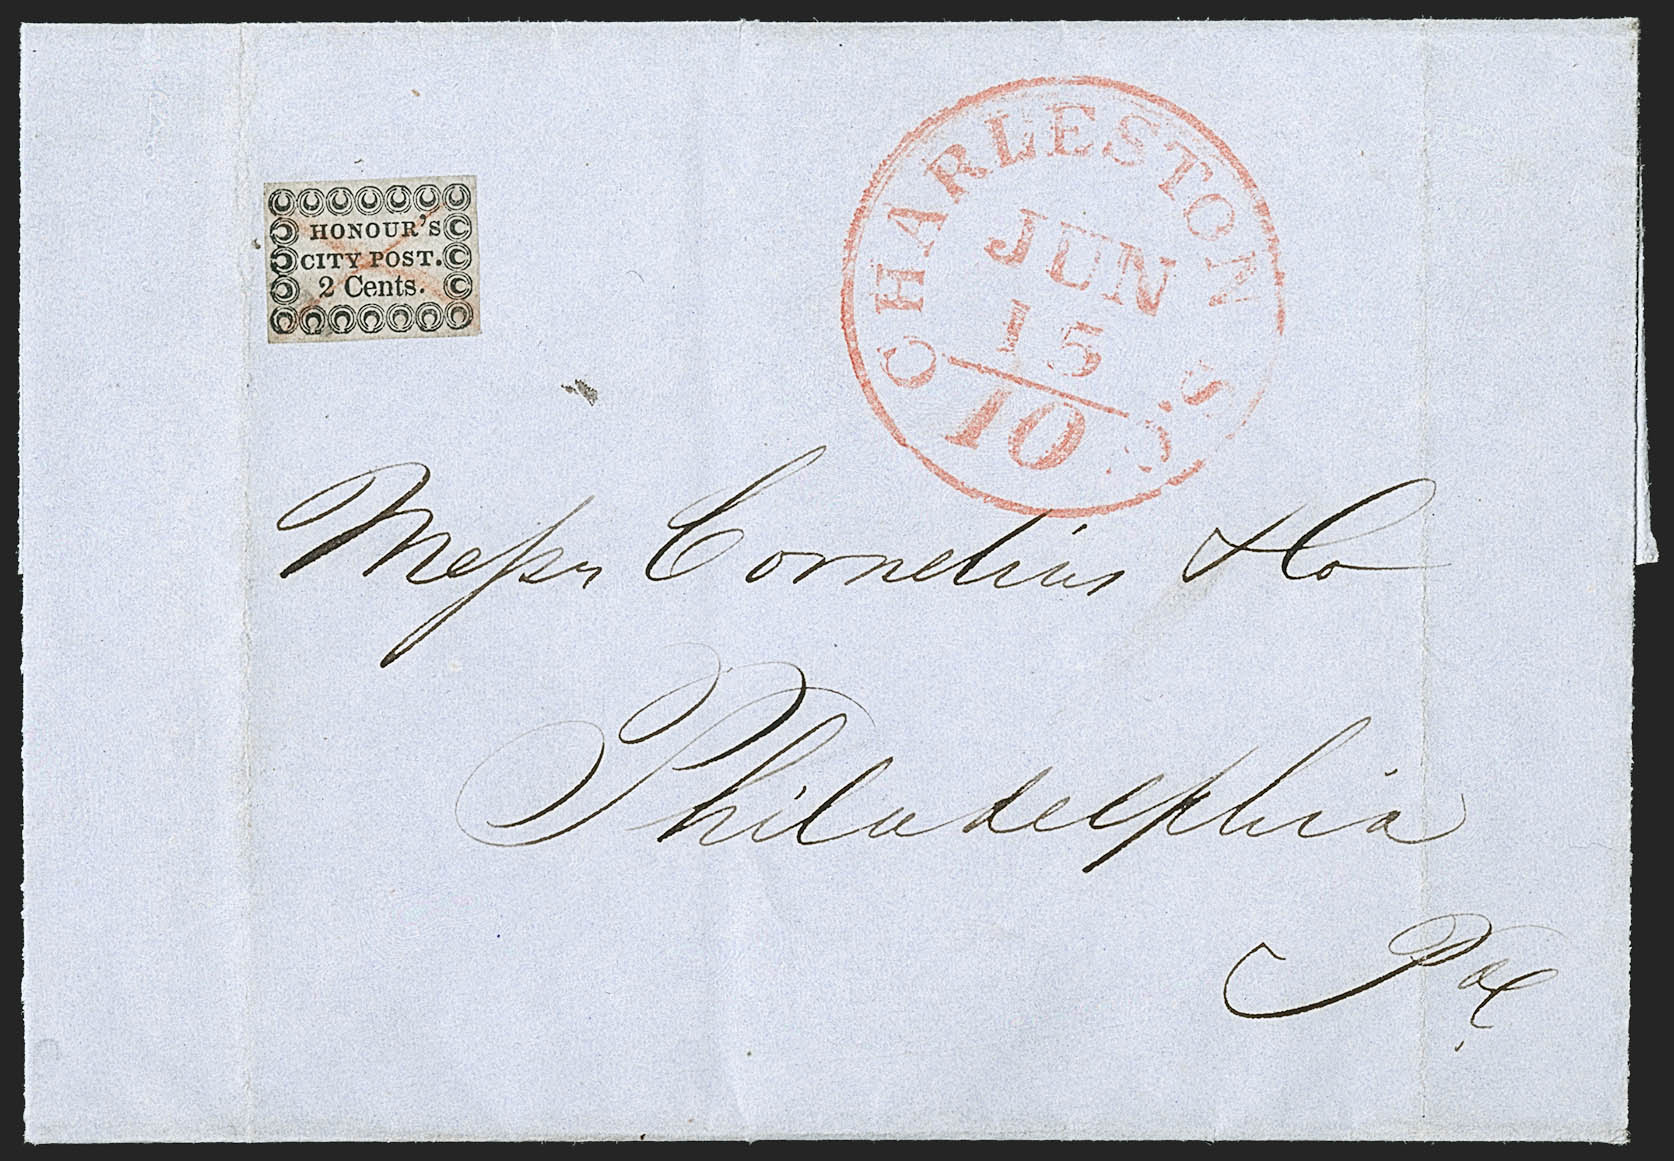 HONOUR'S
CITY POST.
2 Cents.
CHARLESTON S.C.
JUN
15
10
Messrs Cornelius & Co
Philadelphia
Pa